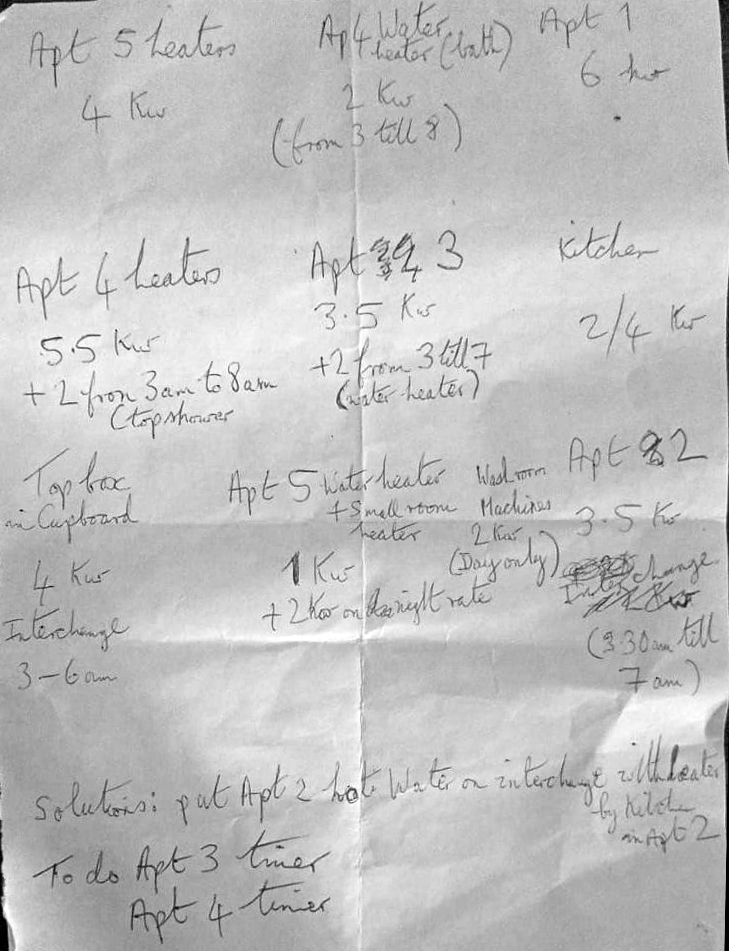 Apt 5 heaters
4 Kw
Apt 4 Water
heater (bath)
2 Kw
(from 3 till 8)
Apt 1
6 kw
Apt 4 heaters
5.5 Kw
+ 2 from 3am to 8am
(top shower
Apt 3
3.5 Kw
+2 from 3 till 7
(water heater)
Kitchen
2/4 Kw
Top box
in Cupboard
4 Kw
Interchange
3-6am
Apt 5 Water heater
+ Small room
heater
1 Kw
+ 2 Kw on night rate
Washroom
Machines
2 Kw
(Day only)
Apt 2
3.5 Kw
Interchange
(3 30am till
7am)
Solutions: put Apt 2 hot Water on interchange with heater
by Kitchen
in Apt 2
To do Apt 3 timer
Apt 4 timer